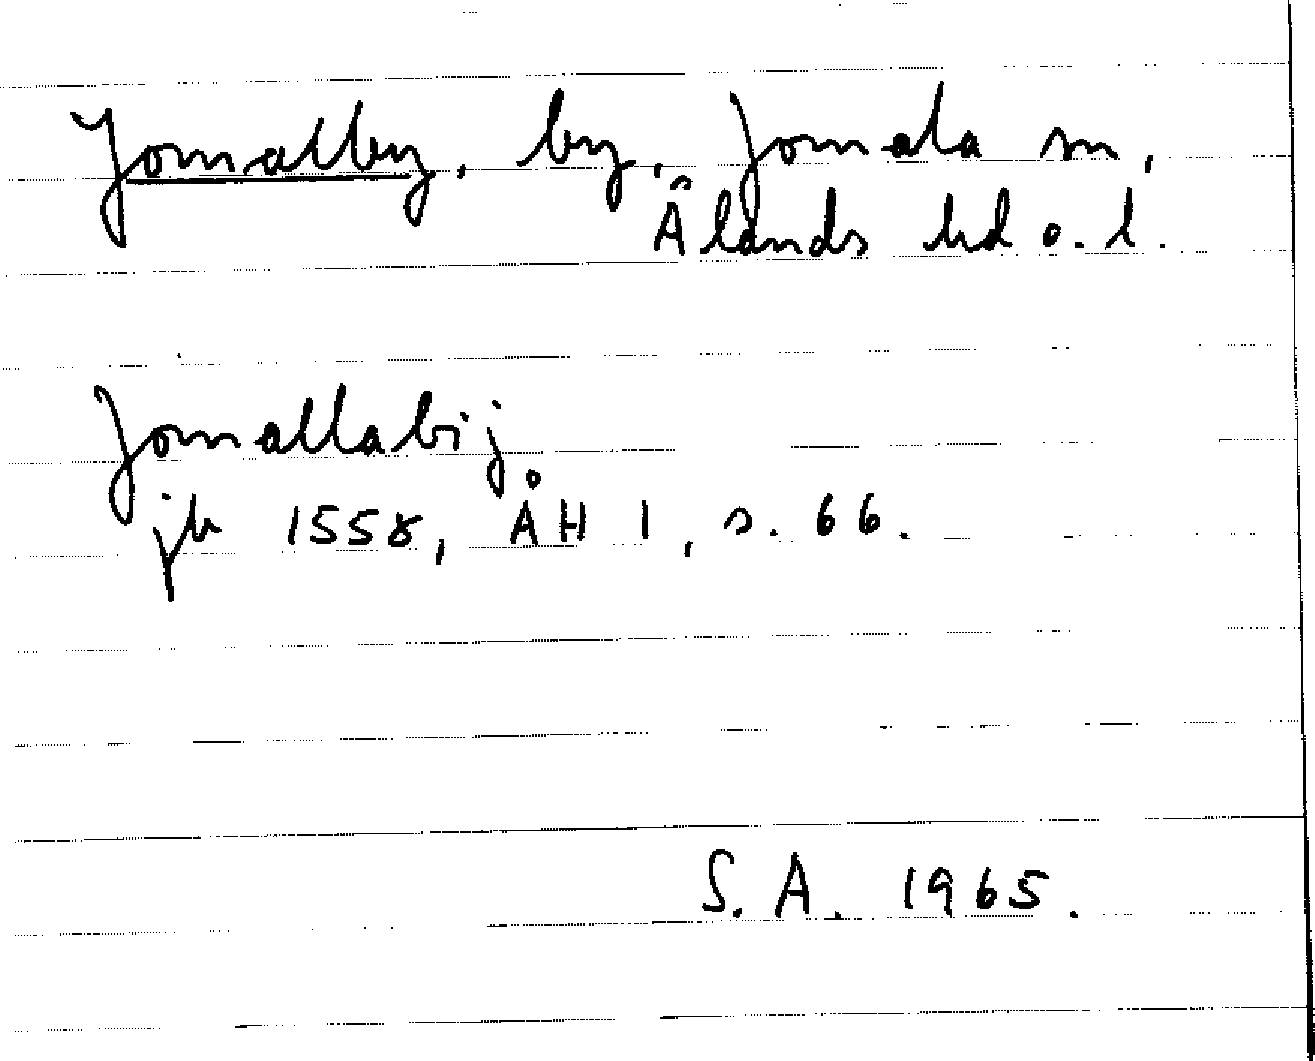 Jomalby, by, Jomala sn,
Ålands hd o. l.
Jomallabij
jb 1558, ÅH I, s. 66.
S. A. 1965.